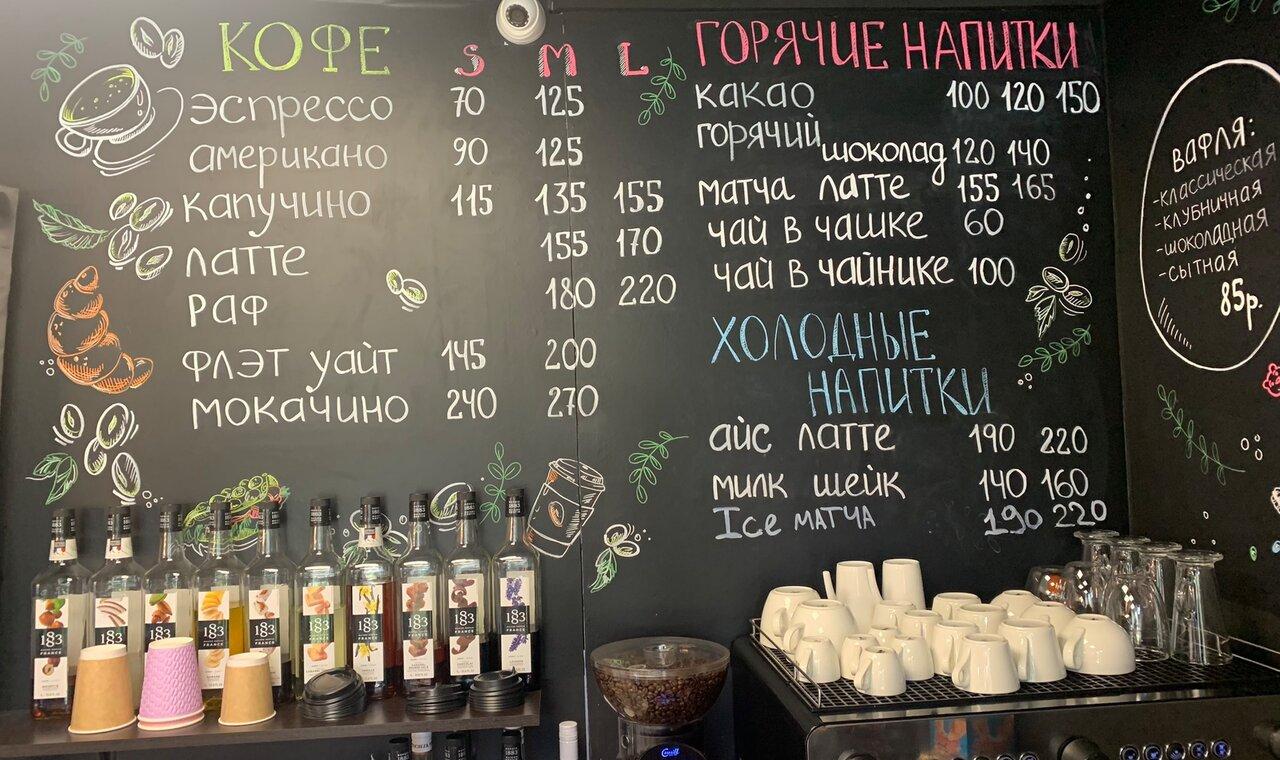 КОФЕ S M L
эспрессо 70 125
американо 90 125
капучино 115 135 155
латте 155 170
раф 180 220
флэт уайт 145 200
мокачино 240 270
ГОРЯЧИЕ НАПИТКИ
какао 100 120 150
горячий
шоколад 120 140
матча латте 155 165
чай в чашке 60
чай в чайнике 100
ХОЛОДНЫЕ
НАПИТКИ
айс латте 190 220
милк шейк 140 160
Ice матча 190 220
ВАФЛЯ:
-классическая
-клубничная
-шоколадная
-сытная
85р.
183
183
183
183
183
183
183
183
183
183
FRANCE